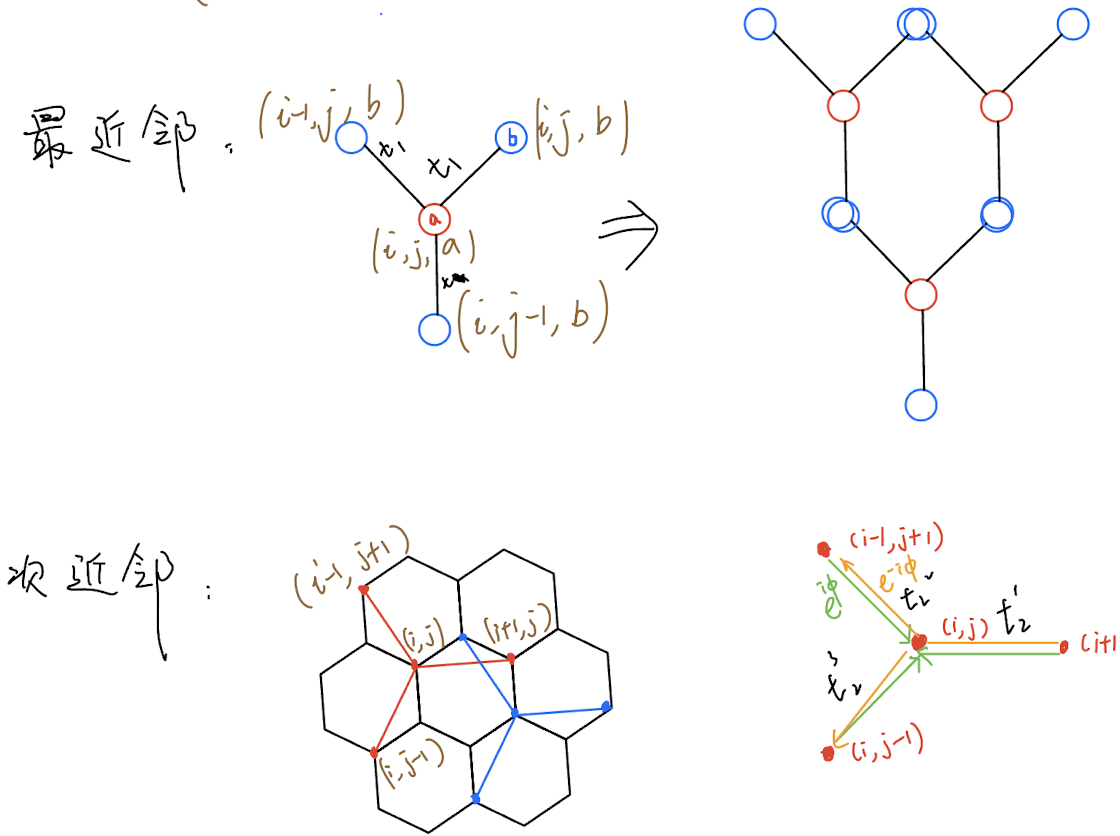 最近邻:
(i-1,j,b)
t1
t1
b
(i,j,b)
a
(i,j,a)
(i,j-1,b)
次近邻:
(i-1,j+1)
(i,j)
(i+1,j)
(i,j-1)
(i-1,j+1)
e^{-iϕ}
e^{iϕ}
t₂²
(i,j)
t₂¹
(i+1
t₂³
(i,j-1)